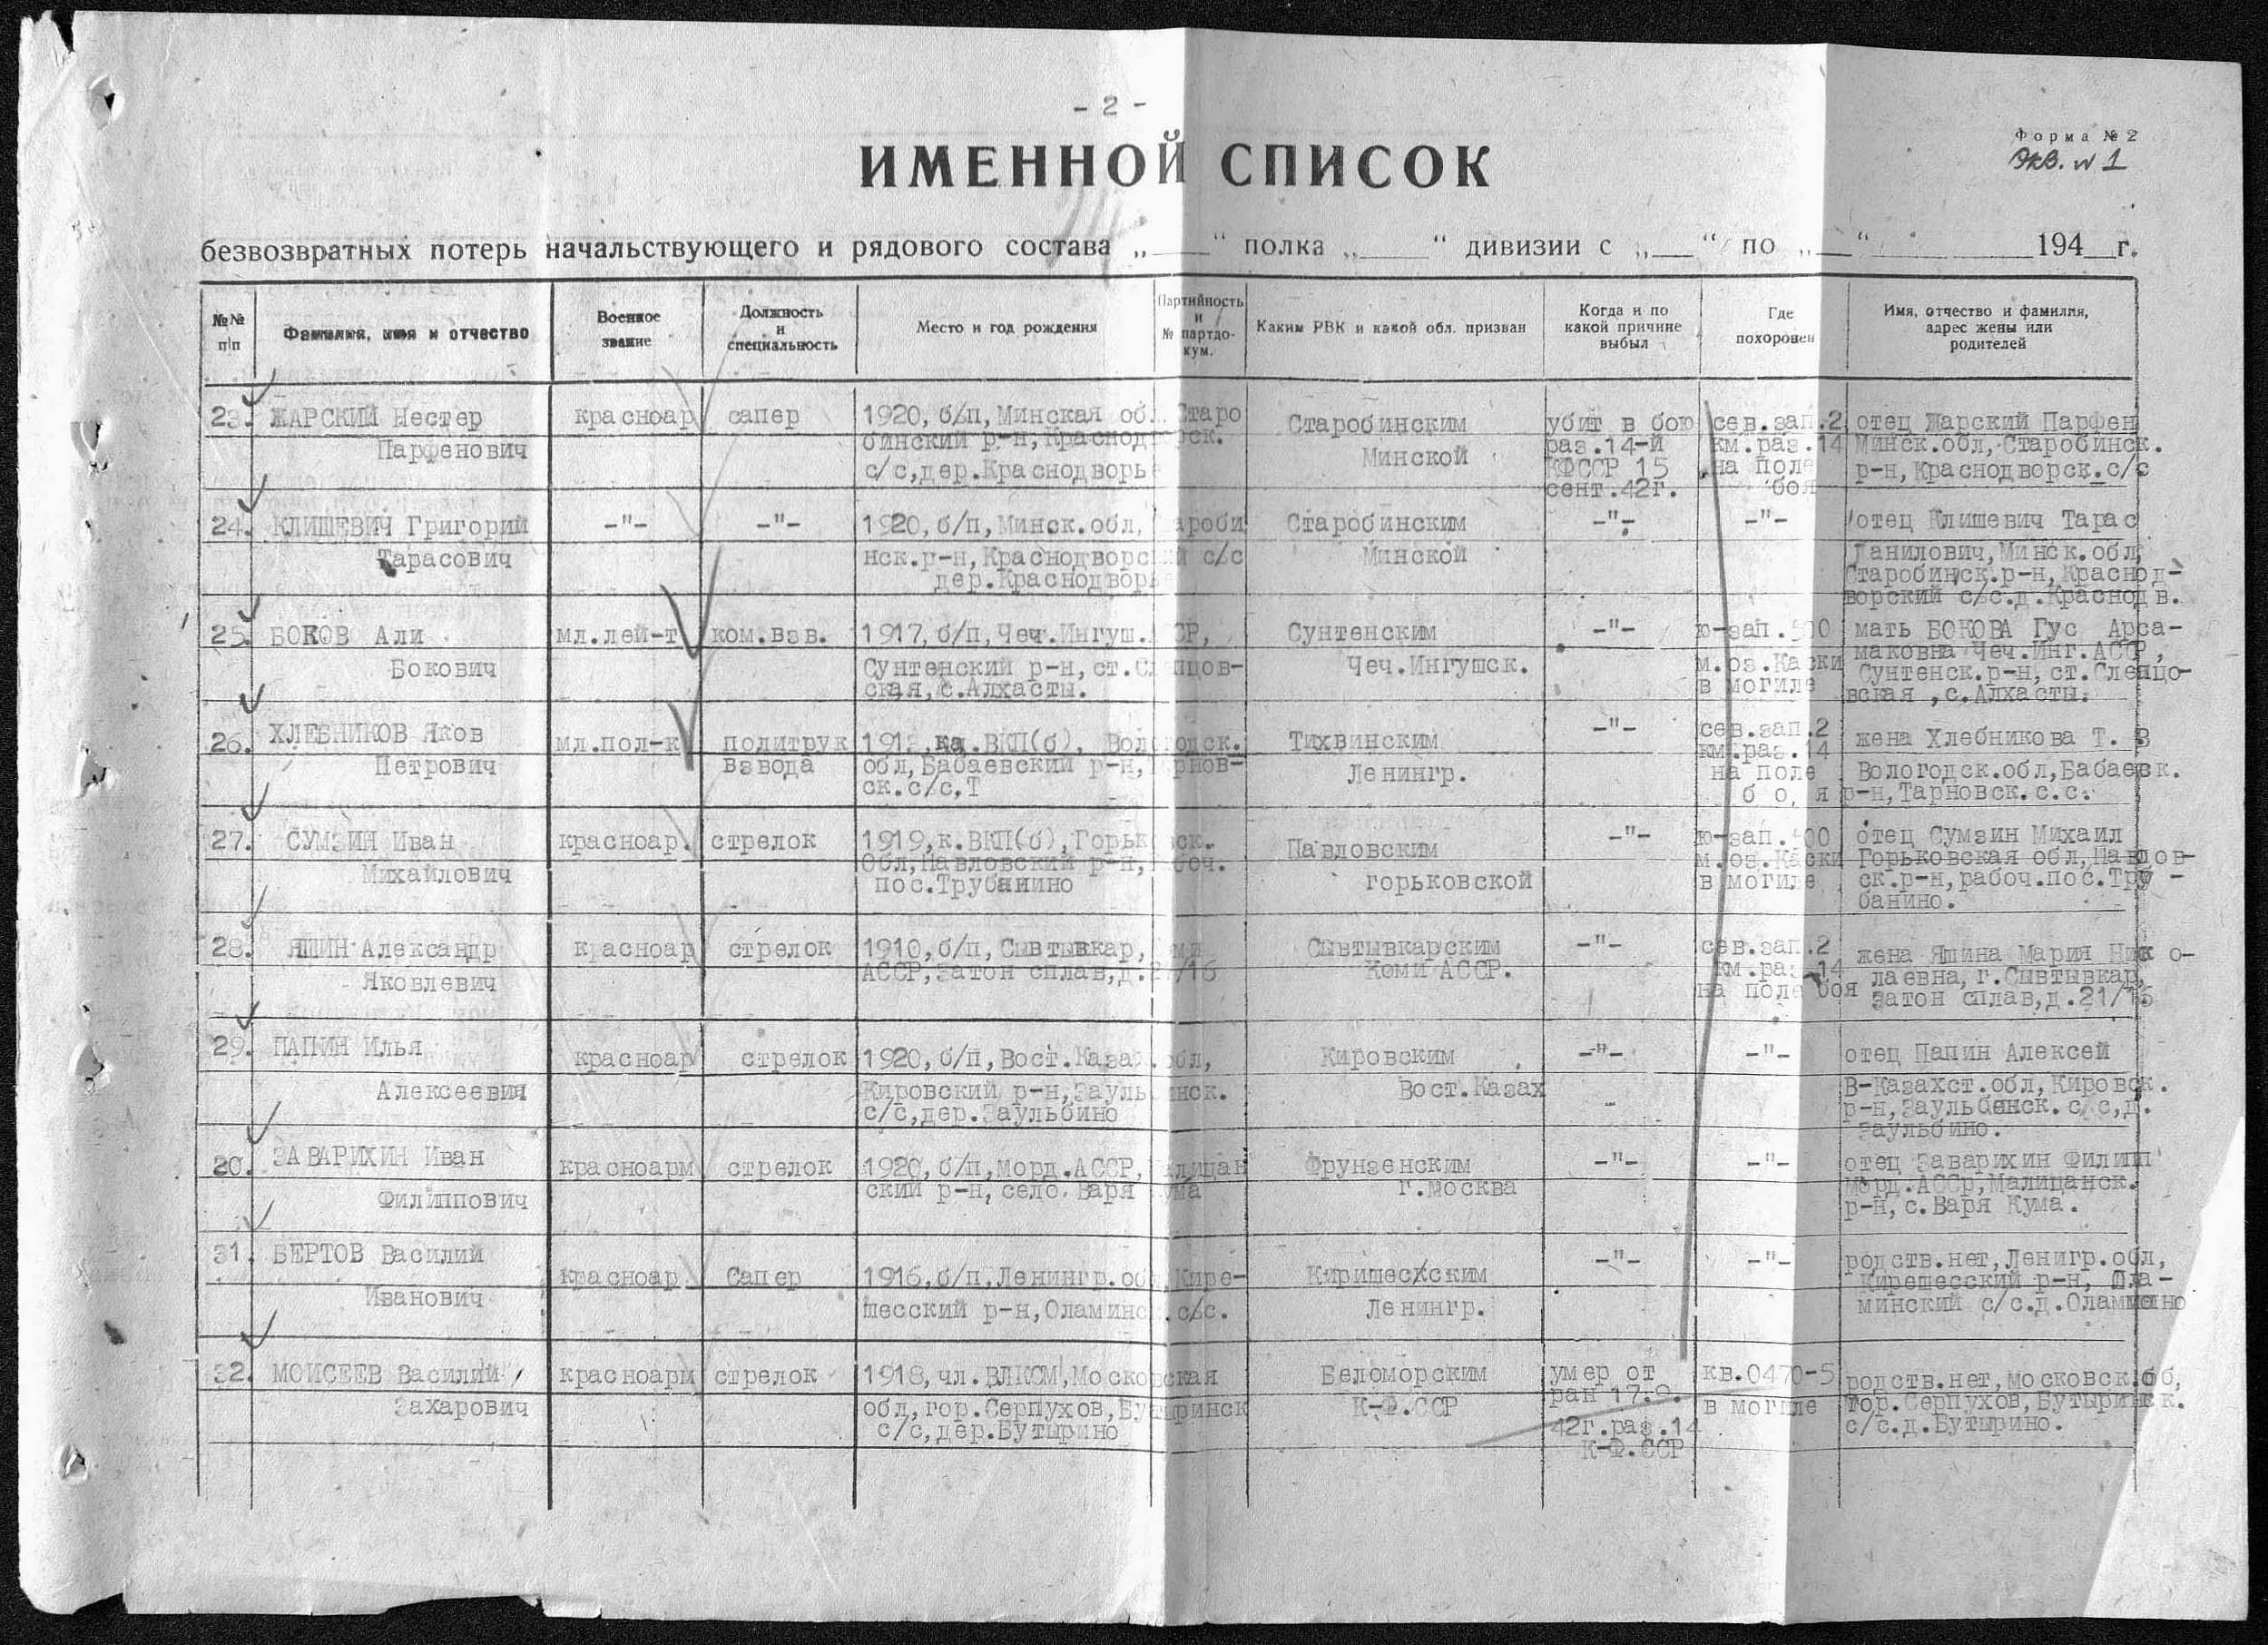 - 2 -
Форма № 2
Экз. № 1
ИМЕННОЙ СПИСОК
безвозвратных потерь начальствующего и рядового состава „___“ полка „___“ дивизии с „___“ по „___“ 194__г.
№№ п|п
Фамилия, имя и отчество
Военное звание
Должность и специальность
Место и год рождения
Партийность и № партдокум.
Каким РВК и какой обл. призван
Когда и по какой причине выбыл
Где похоронен
Имя, отчество и фамилия, адрес жены или родителей
23. ЖАРСКИЙ Нестер красноар сапер 1920, б/п, Минская об. Старо Старобинским убит в бою сев.зап.2 отец Жарский Парфен
Парфенович бинский р-н, Краснод рск. Минской раз.14-й км.раз.14 Минск.обл, Старобинск.
с/с,дер.Краснодворье КФССР 15 на поле р-н, Краснодворск.с/с
сент.42г. боя
24. КЛИШЕВИЧ Григорий -"- -"- 1920, б/п, Минск.обл, ароби Старобинским -"- -"- отец Клишевич Тарас
Тарасович нск.р-н, Краснодворс й с/с Минской Данилович, Минск.обл,
дер.Краснодворье Старобинск.р-н, Краснод-
ворский с/с.д.Краснодв.
25. БОКОВ Али мл.лей-т ком.взв. 1917, б/п, Чеч.Ингуш. СР, Сунтенским -"- ю-зап.500 мать БОКОВА Гус Арса-
Бокович Сунтенский р-н, ст.Слепцов- Чеч.Ингушск. м.оз.Каски маковна Чеч.Инг.АСТР,
ская, с.Алхасты. в могиле Сунтенск.р-н, ст.Слепцо-
вская ,с.Алхасты.
26. ХЛЕБНИКОВ Яков мл.пол-к политрук 191 , кд.ВКП(б), Вологодск. Тихвинским -"- сев.зап.2 жена Хлебникова Т. В
Петрович взвода обл, Бабаевский р-н, рнов- Ленингр. км.раз.14 Вологодск.обл, Бабаевск.
ск.с/с,Т на поле р-н, Тарновск.с.с.
б о, я
27. СУМЗИН Иван красноар. стрелок 1919, к.ВКП(б), Горьк вск. Павловским -"- ю-зап.500 отец Сумзин Михаил
Михайлович Обл, Павловский р-н, боч. горьковской м.оз.Каски Горьковская обл, Павлов-
пос.Трубанино в могиле ск.р-н, рабоч.пос.Тру -
банино.
28. ЯШИН Александр красноар стрелок 1910, б/п, Сывтывкар, ми Сывтывкарским -"- сев.зап.2 жена Яшина Мария Ник о-
Яковлевич АССР, затон сплав,д.2 /16 Коми АССР. км.раз 14 лаевна, г.Сывтывкар,
на поле боя затон сплав,д.21/16
29. ПАПИН Илья красноар стрелок 1920, б/п, Вост.Казах.обл, Кировским -"- -"- отец Папин Алексей
Алексеевич Кировский р-н, Зауль инск. Вост.Казах В-Казахст.обл, Кировск.
с/с,дер.Заульбино р-н, Заульбинск.с/с,д.
Заульбино.
20. ЗАВАРИХИН Иван красноарм стрелок 1920, б/п, Морд.АССР, лицан Фрунзенским -"- -"- отец Заварихин Филипп
Филиппович ский р-н, село.Варя ума г.Москва Морд.АССр, Малицанск.
р-н, с.Варя Кума.
31. БЕРТОВ Василий красноар Сапер 1916, б/п, Ленингр.об Кире- Киришесхским -"- -"- родств.нет, Ленигр.обл,
Иванович шесский р-н, Оламинс .с/с. Ленингр. Кирешесский р-н, Ола-
минский с/с.д.Оламино
32. МОИСЕЕВ Василий красноарм стрелок 1918, чл.ВЛКСМ, Московская Беломорским умер от кв.0470-5 родств.нет, Московск.об,
Захарович обл, гор.Серпухов, Бутыринск К-Ф.ССР ран 17.9. в могиле гор.Серпухов, Бутыринск.
с/с,дер.Бутырино 42г.раз.14 с/с.д.Бутырино.
К-Ф.ССР